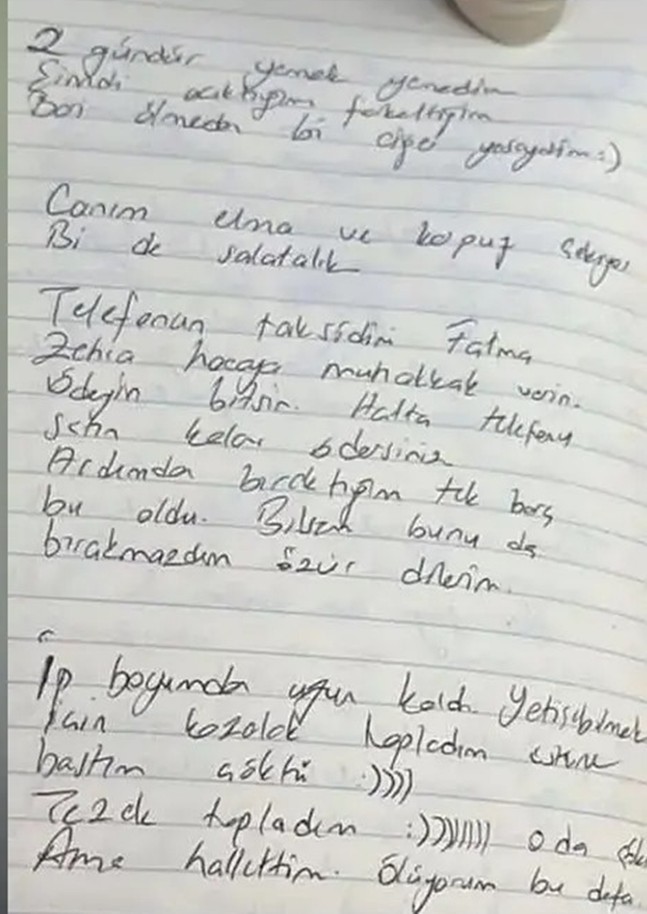 2 gündür yemek yemedim
Şimdi acıktığımı farkettim
Ben ölmeden bi cips yeseydim :)
Canım elma ve kopuz çekiyor
Bi de salatalık
Telefonun taksidini Fatma
Zehra hocaya muhakkak verin.
Ödeyin bitsin. Hatta telefonu
satın kalanı ödersiniz
Ardımda bıraktığım tek borç
bu oldu. Bilsem bunu da
bırakmazdım özür dilerim.
İp boyumdan uzun kaldı. Yetişebilmek
için kozalak topladım üstüne
bastım çöktü :))))
Tezek topladım :))))))))) o da
Ama hallettim. Ölüyorum bu defa.